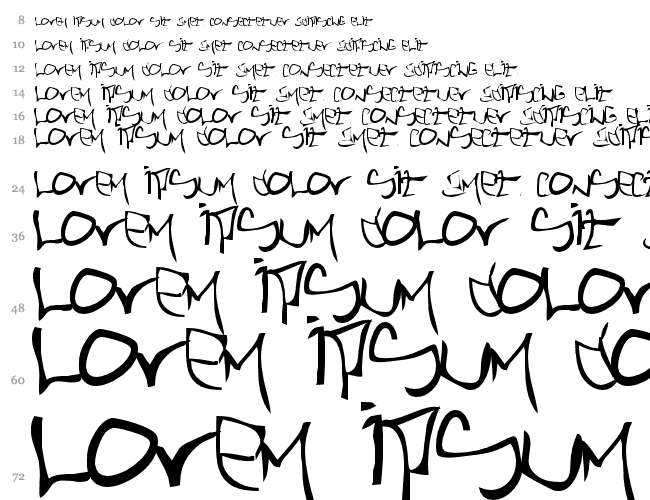 8 Lorem ipsum dolor sit amet consectetuer adipiscing elit
10 Lorem ipsum dolor sit amet consectetuer adipiscing elit
12 Lorem ipsum dolor sit amet, consectetuer adipiscing elit.
14 Lorem ipsum dolor sit amet, consectetuer adipiscing elit.
16 Lorem ipsum dolor sit amet, consectetuer adipiscing eli
18 Lorem ipsum dolor sit amet, consectetuer adipis
24 Lorem ipsum dolor sit amet, consect
36 Lorem ipsum dolor sit
48 Lorem ipsum dolor
60 Lorem ipsum do
72 Lorem ipsum